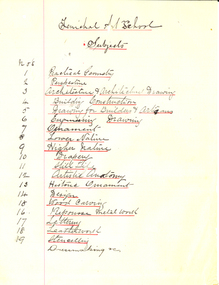 School
Subjects
1 Practical Geometry
2 Perspective
3 Architecture & Architectural Drawing
4 Building Construction
5 Drawing for Builders & Artisans
6 Engineering Drawing
7 Ornament
8 Lower Nature
9 Higher Nature
10 Drapery
11 Still Life
12 Artistic Anatomy
13 Historic Ornament
14 Design
15 Wood Carving
16 Repousse Metal Work
17 Lettering
18 Leatherwork
19 Stencilling
Dressmaking